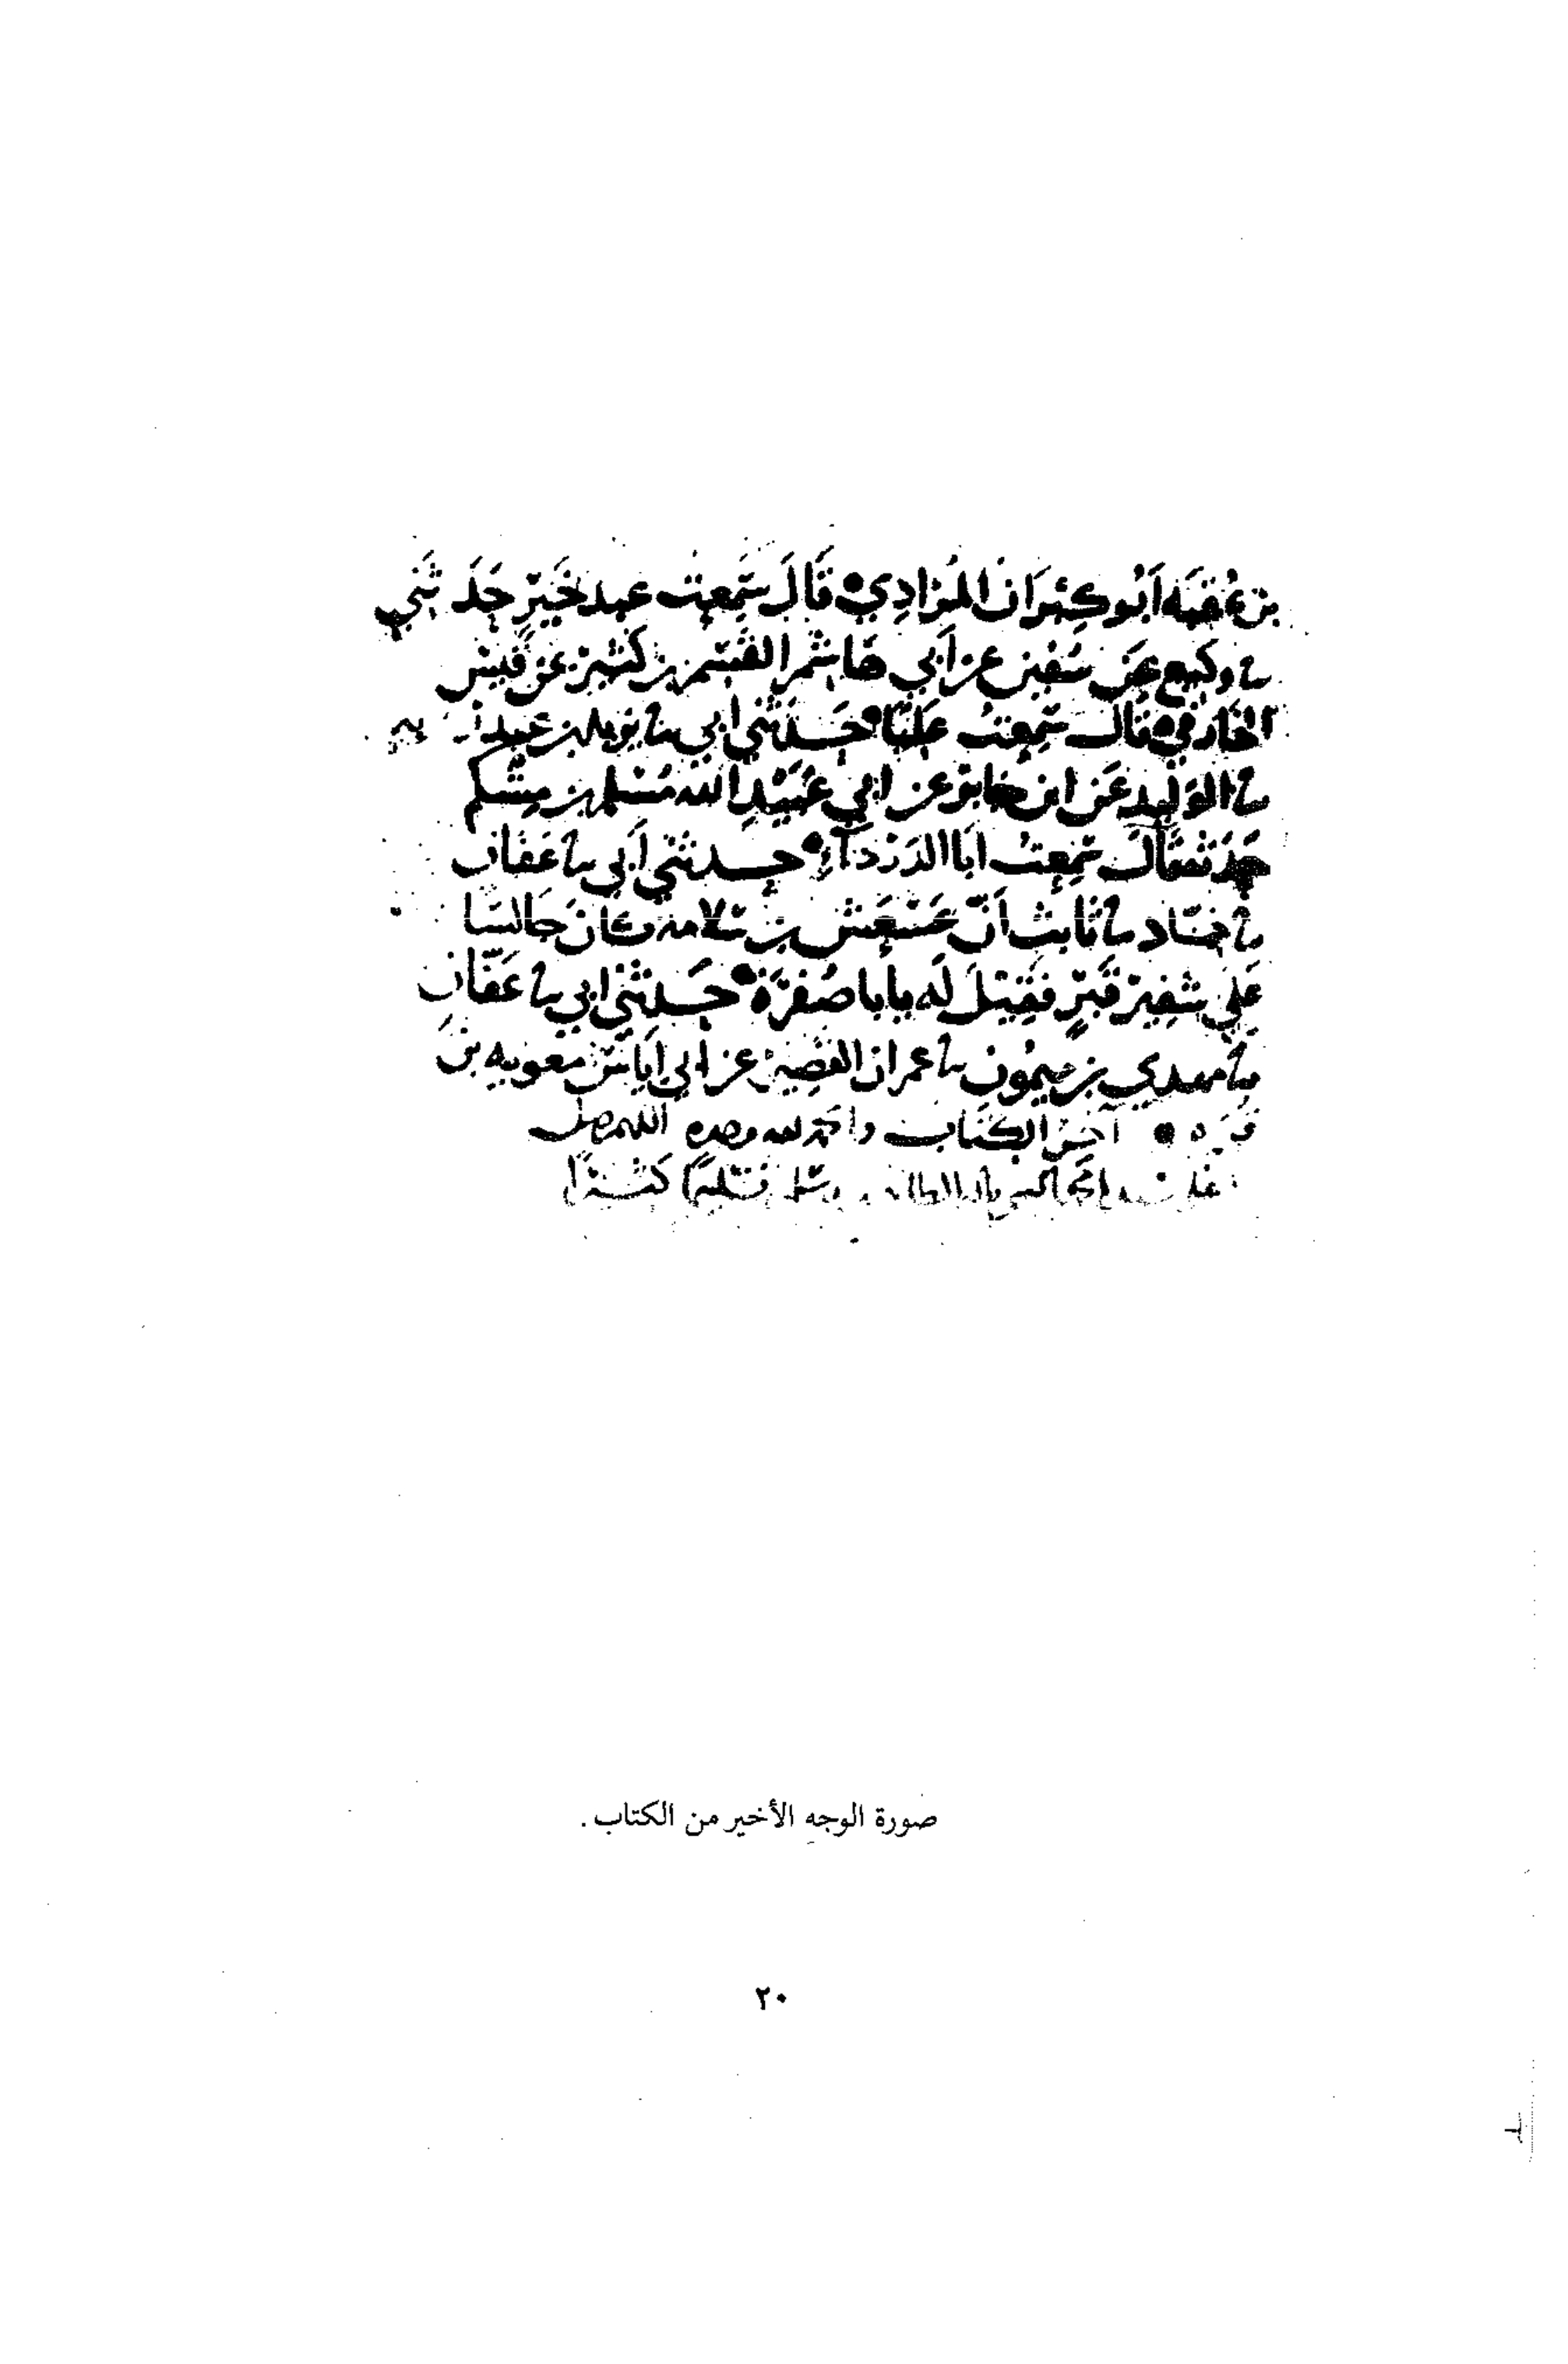 بن عُقبَه أَبُو كِبْرَان المُرَادِي قَالَ سَمِعت عبد خَيْرٍ حَدَّثَني
نا وكيع عَن سُفين عن أَبي هَاشم القسم بن كَثير عن قَيس
الخَارفي قال سَمِعتُ عَليًّا حَدَثني ابي نا يزيد بن عبد
نا الوَليد عَن ابن جابر عن ابي عُبَيْدِ الله مُسْلم بن مِشْكم
حَدثه قَالَ سَمِعتُ ابَا الدَرْدَآءِ حدثني أَبي نا عَفَّان
نا حمَّاد نا ثابت أَنّ عَسْعَس بن سَلامه كَانَ جَالسًا
عَلى شَفِيرْ قَبْرٍ فَقِيْلَ لَه يا با صُفْرَة حَدثني ابي نا عَفّان
نا مهدي بن ميمُون نا عمران القصير عن ابي إيَاسٍ معويه بن
قره آخِر الكتاب والحمد لله وحده اللهم صل
على محمد وسلم تسليمًا كثيْرًا
صورة الوجه الأخير من الكتاب .
٢٠